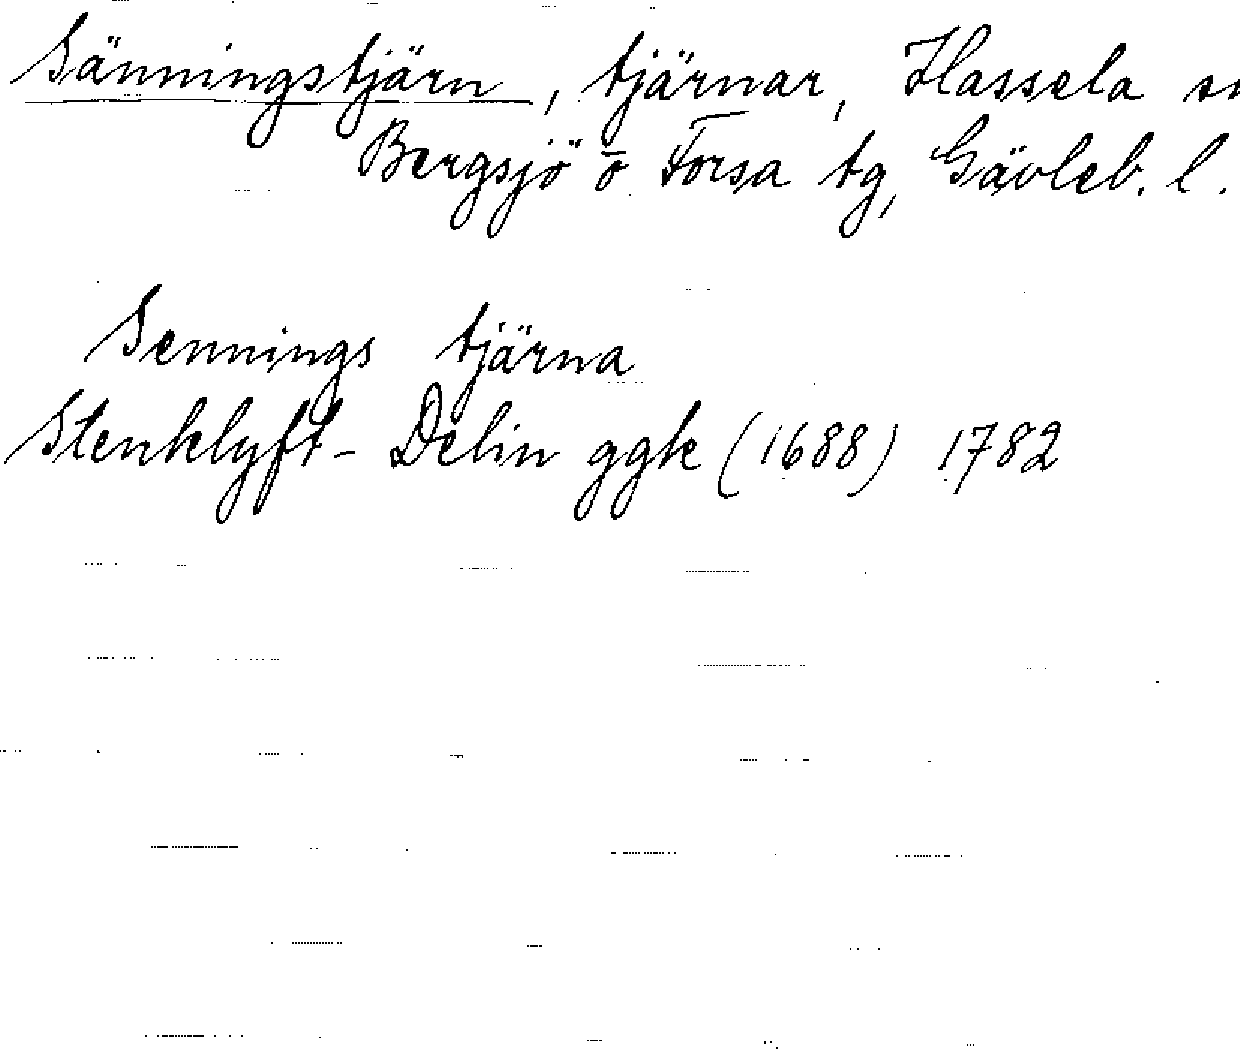 Sänningstjärn, tjärnar, Hassela sn
Bergsjö o Forsa tg, Gävleb. l.
Sennings tjärna
Stenklyft- Delin ggk (1688) 1782